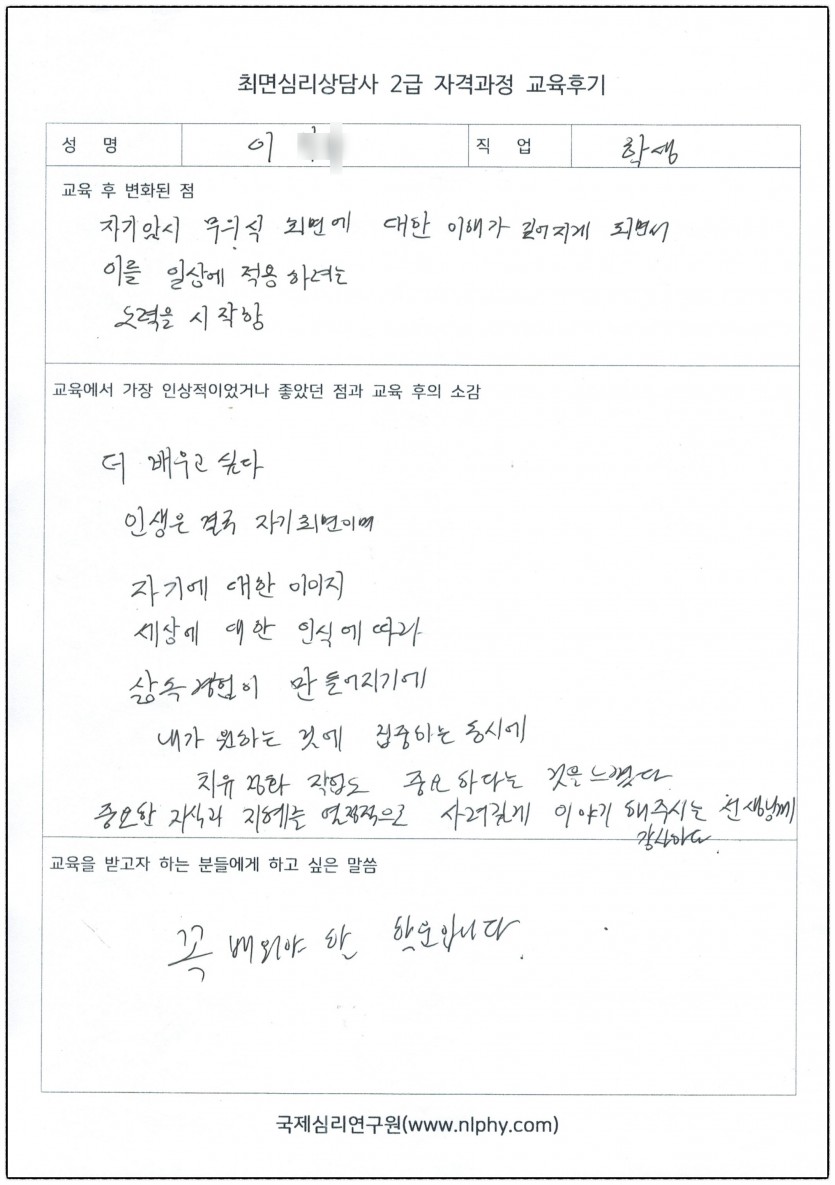 최면심리상담사 2급 자격과정 교육후기
성 명 이 직 업 학생
교육 후 변화된 점
자기암시 무의식 최면에 대한 이해가 깊어지게 되면서
이를 일상에 적용하려는
노력을 시작함
교육에서 가장 인상적이었거나 좋았던 점과 교육 후의 소감
더 배우고 싶다
인생은 결국 자기최면이며
자기에 대한 이미지
세상에 대한 인식에 따라
삶속 경험이 만들어지기에
내가 원하는 것에 집중하는 동시에
치유 정화 작업도 중요하다는 것을 느꼈다
중요한 지식과 지혜를 열정적으로 사려깊게 이야기 해주시는 선생님께
감사하다.
교육을 받고자 하는 분들에게 하고 싶은 말씀
꼭 배워야 할 학문입니다.
국제심리연구원(www.nlphy.com)